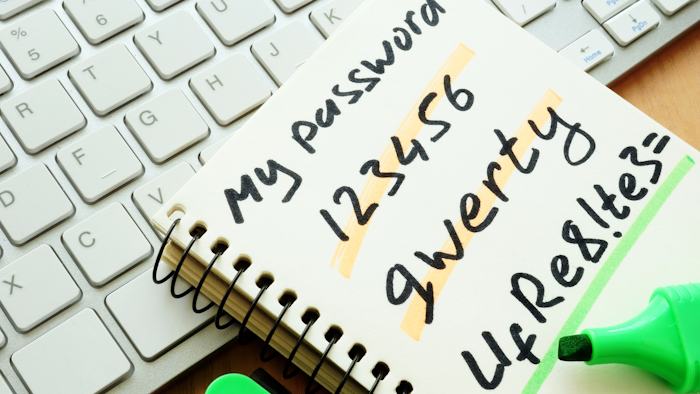 My password
123456
qwerty
UfRe8!te3=
%
5
^
6
R
T
Y
U
D
F
G
H
J
K
X
C
V
Home
PgUp
PgDn